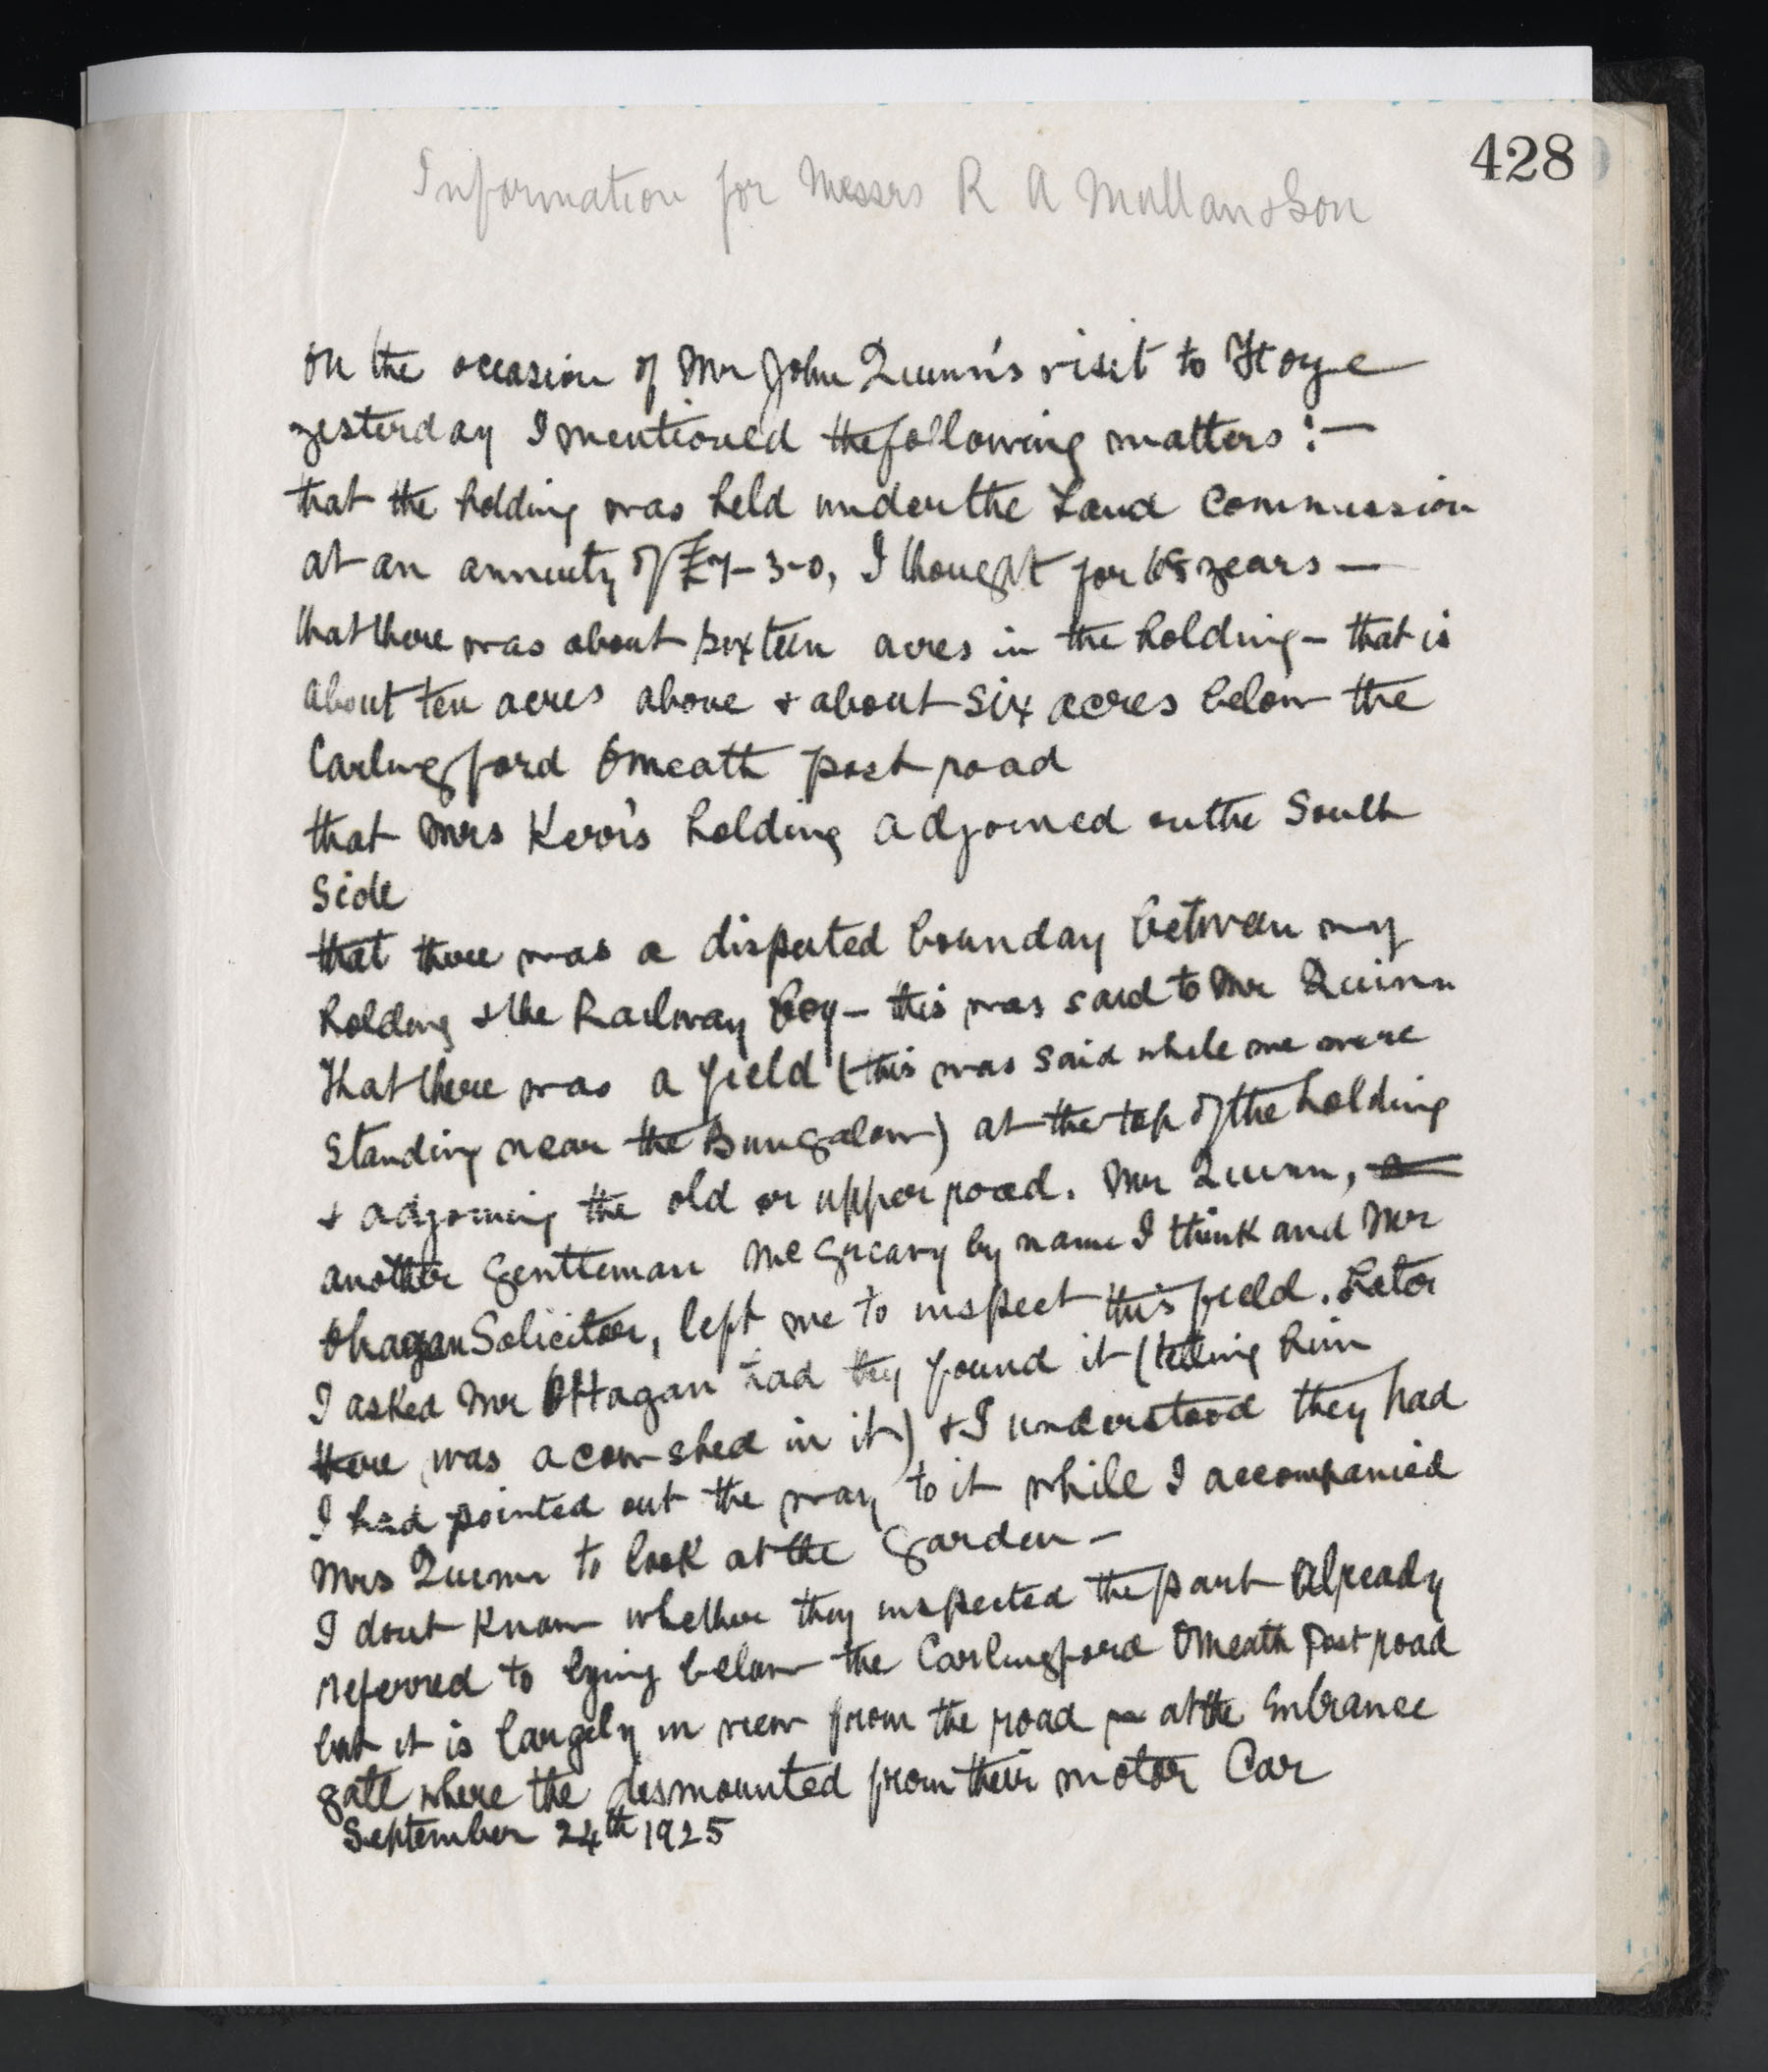 428
Information for Messrs R A Mullan & Son
On the occasion of Mr John Quinn's visit to
yesterday I mentioned the following matters :—
that the holding was held under the Land Commission
at an annuity of £7-3-0, I thought for 68 years —
that there was about sixteen acres in the holding – that is
about ten acres above & about six acres below the
Carlingford Omeath post road
that Mrs Kerr's holding adjoined on the South
Side
that there was a disputed bounday between my
holding & the Railway Coy – this was said to Mr Quinn
That there was a field (this was said while we were
standing near the Bungalow) at the top of the holding
& adjoining the old or upper road. Mr Quinn, a
another gentleman McGreavy by name I think and Mr
Ohagan Solicitor, left me to inspect this field. Later
I asked Mr OHagan had they found it (telling him
there was a cow-shed in it) & I understood they had
I had pointed out the way to it while I accompanied
Mrs Quinn to look at the garden –
I dont know whether they inspected the part Already
referred to lying below the Carlingford Omeath Post road
but it is largely in view from the road at the Entrance
gate where the dismounted from their motor Car
September 24th 1925